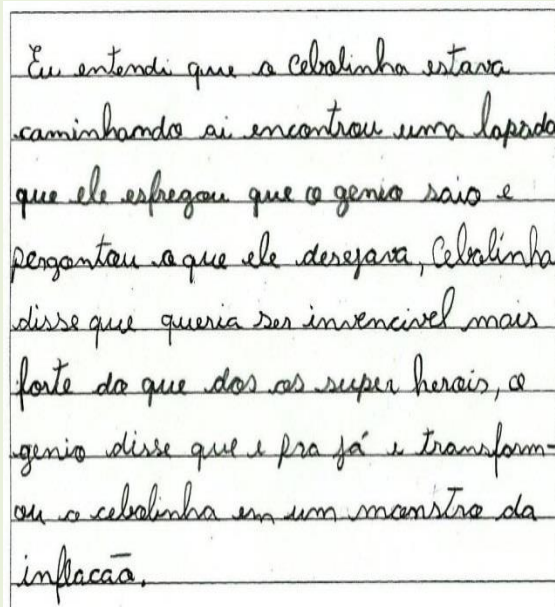 Eu entendi que o Cebolinha estava
caminhando ai encontrou uma lapada
que ele esfregou que o genio saio e
pergontou o que ele desejava, Cebolinha
disse que queria ser invencivel mais
forte do que dos os super herois, o
genio disse que e pra já e transform-
ou o cebolinha em um monstro da
inflacão.